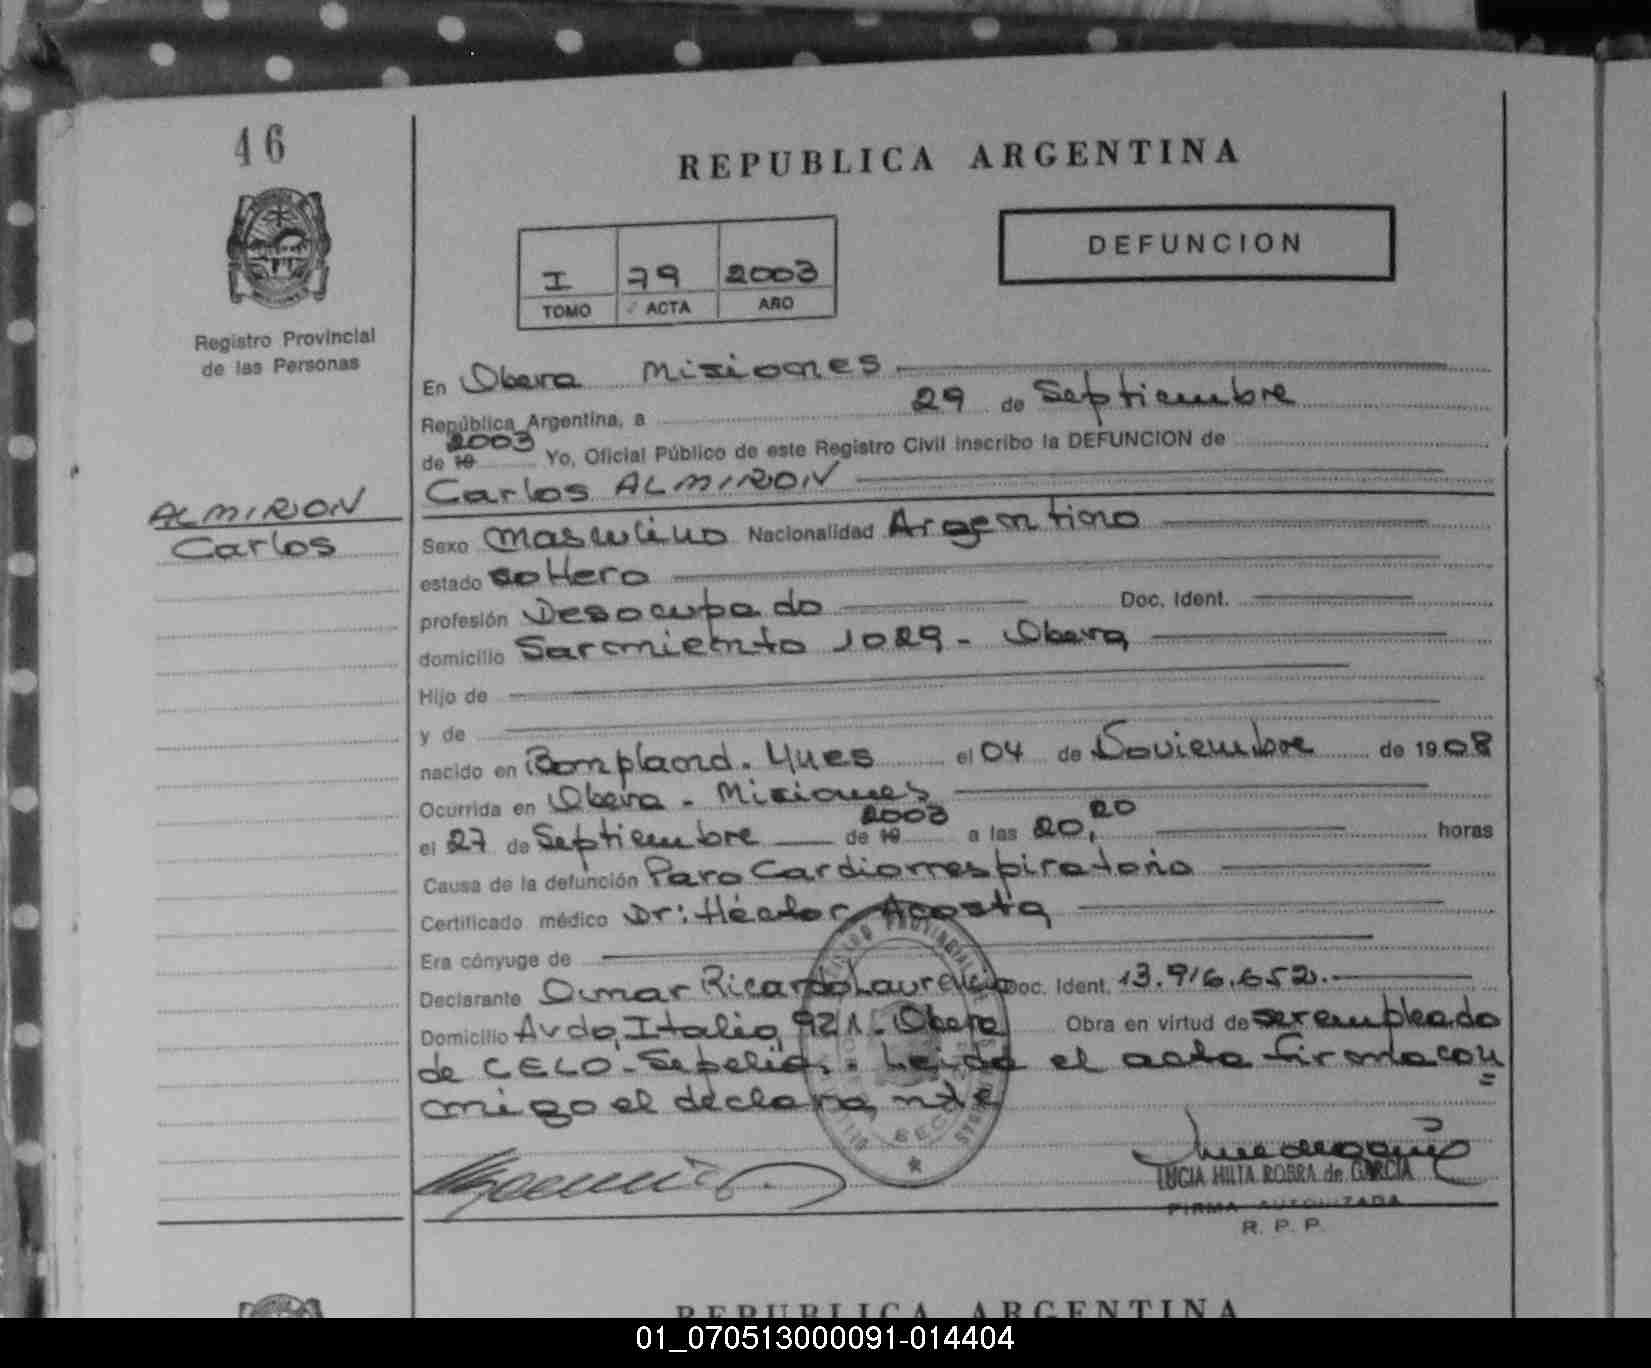 46
REPUBLICA ARGENTINA
I 79 2003
TOMO ACTA AÑO
DEFUNCION
Registro Provincial
de las Personas
En Obera Misiones
República Argentina, a 29 de Septiembre
de 19 2003 Yo, Oficial Público de este Registro Civil inscribo la DEFUNCION de
Carlos ALMIRON
ALMIRON
Carlos
Sexo Masculino Nacionalidad Argentino
estado soltero
profesión Desocupado Doc. Ident.
domicilio Sarmiento 1029 - Obera
Hijo de
y de
nacido en Bompland. Mnes el 04 de Noviembre de 1908
Ocurrida en Obera - Misiones
el 27 de Septiembre de 19 2003 a las 20,20 horas
Causa de la defunción Paro Cardiorrespiratorio
Certificado médico Dr: Héctor Acosta
Era cónyuge de
Declarante Omar Ricardo Laurencio Doc. Ident. 13.916.652.
Domicilio Avda, Italia, 921. Obera Obra en virtud de ser empleado
de CELO - Sepelio. Leida el acta firma con
migo el declarante
LUCIA HILTA ROBRA de GARCIA
FIRMA AUTORIZADA
R. P. P.
REPUBLICA ARGENTINA
01_070513000091-014404